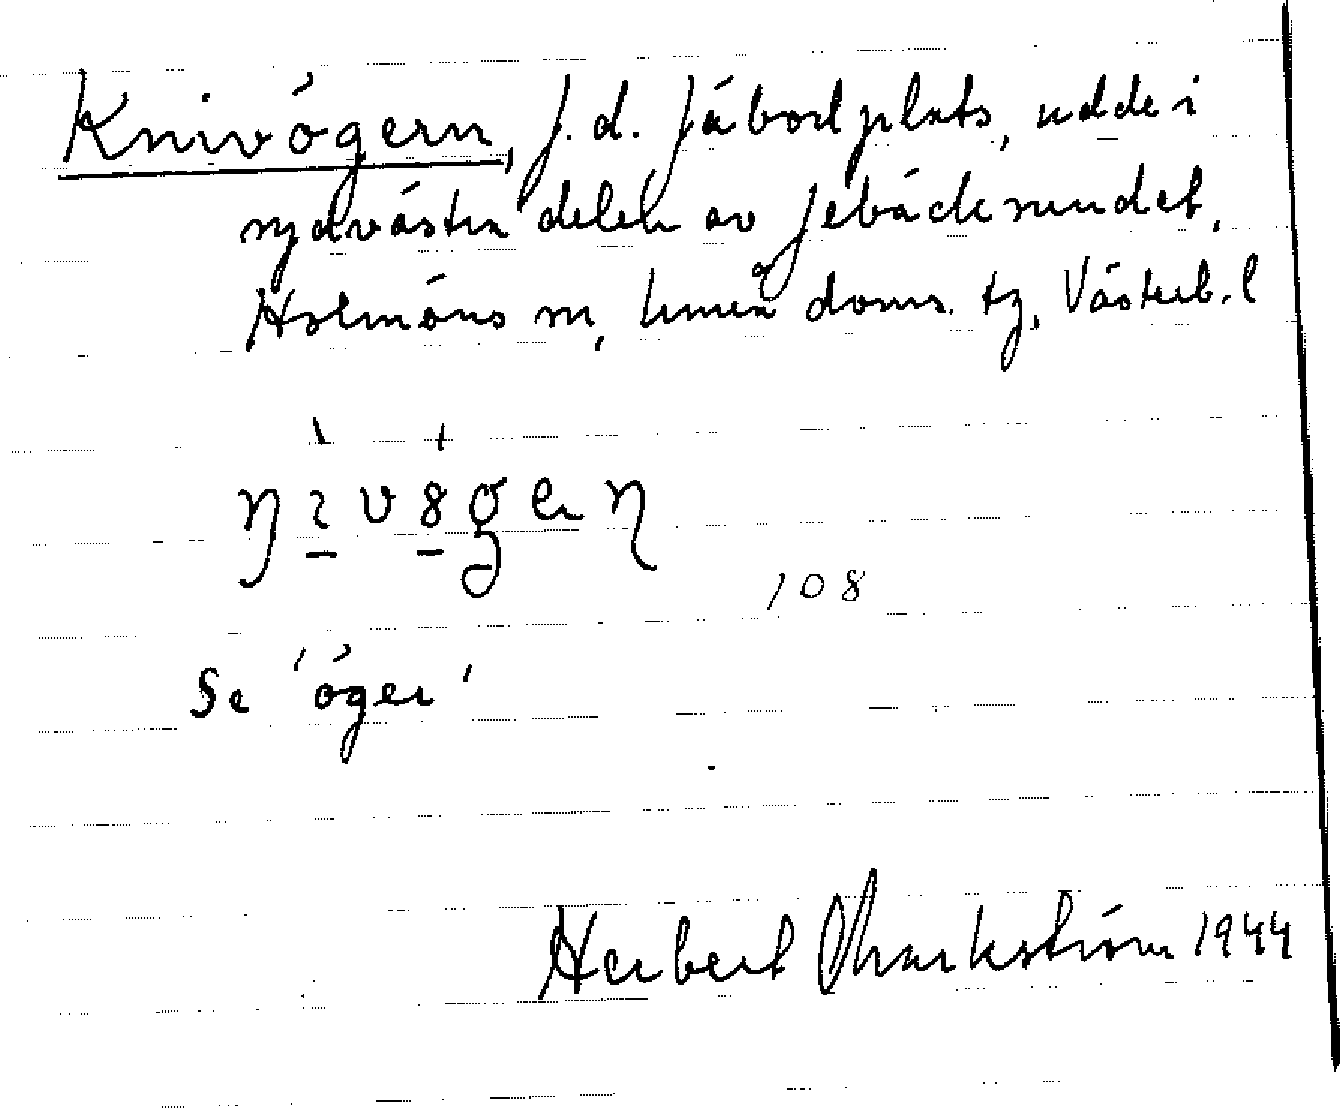 Knivögern, f.d. fäbodplats, udde i
nordvästra delen av Jebäcksundet,
Holmöns sn, Umeå doms. tg, Västerb. l
Se 'öger'
108
Herbert Markström 1944